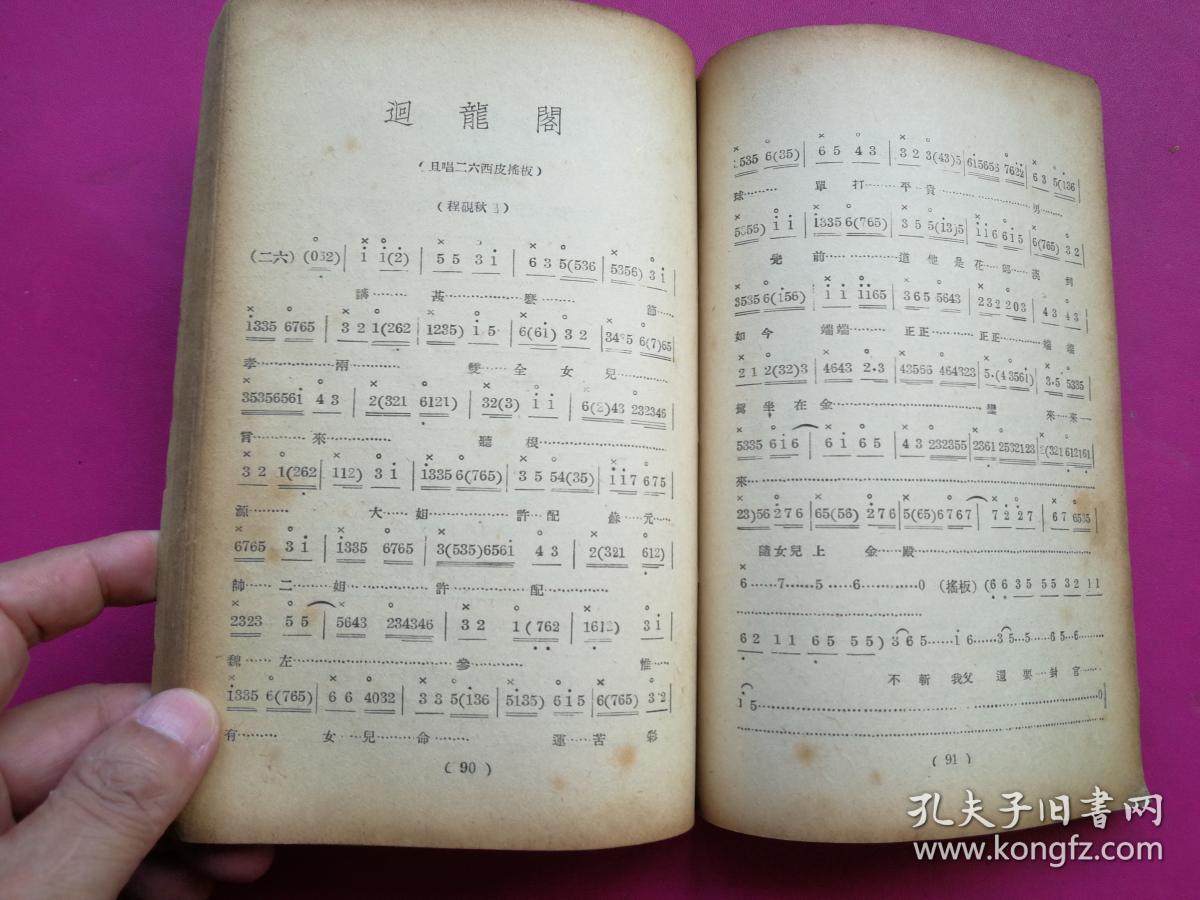 迴龍閣
(旦唱二六西皮搖板)
(程硯秋)
(二六) (032) | i i(2) | 5 5 3 i | 6 3 5(536 | 5356) 3 i
講……甚……麼……節……
i335 6765 | 3 2 1(262 | 1235) i 5 | 6(6i) 3 2 | 5 6(7)65
孝……兩……雙…全女…兒
3535656i 4 3 | 2(321 6121) | 32(3) i i | 6(2)43 232346
言……來……聽根……
3 2 1(262 | 112) 3 i | i335 6(765) | 3 5 54(35) | i i 7 6 7 5
源……大…姐……許…配……蘇…元…
6765 3 i | i335 6765 | 3(535)656i 4 3 | 2(321 612)
帥……二…姐……許……配……
2323 5 5 | 5643 234346 | 3 2 1(762 | 1612) 3 i
魏……左……參……惟……
i335 6(765) | 6 6 4032 | 3 3 5(i36 | 5i35) 6 i 5 | 6(765) 3 2
有……女…兒……命……運…苦…彩
(90)
1535 6(35) | 6 5 4 3 | 3 2 3(43)5 | 615656 7622 | 6 3 5(136
球……單打……平…貴……男……
5356) i i | i335 6(765) | 3 5 5(i3)5 | i i 6 6 i 5 | 6(765) 3 2
前……道他…是…花…郎…到
3535 6(i56) | i i i i65 | 3 6 5 5643 | 2 3 2 2 0 3 | 4 3 4 3
如今端端……正正……正正……端端
2 1 2(32)3 | 4643 2·3 | 43566 464323 | 5·(4 356i) | 3·5 5335
坐在金……來…來…
5335 6 i 6 | 6 i 6 5 | 4 3 232355 | 2361 2532123 | 2(321 612161
來……
23)56 2 7 6 | 65(56) 2 7 6 | 5(65) 6 7 6 7 | 7 2 2 7 | 6 7 6535
隨女兒上金…殿……
6……7……5……6……0 (搖板) (6 6 3 5 5 5 3 2 1 1
6 2 1 1 6 5 5 5) 3 6……i 6……3 5…5……6 5…6……
不斬我父還…要…封官……
i 5……0
(91)
孔夫子旧书网
www.kongfz.com